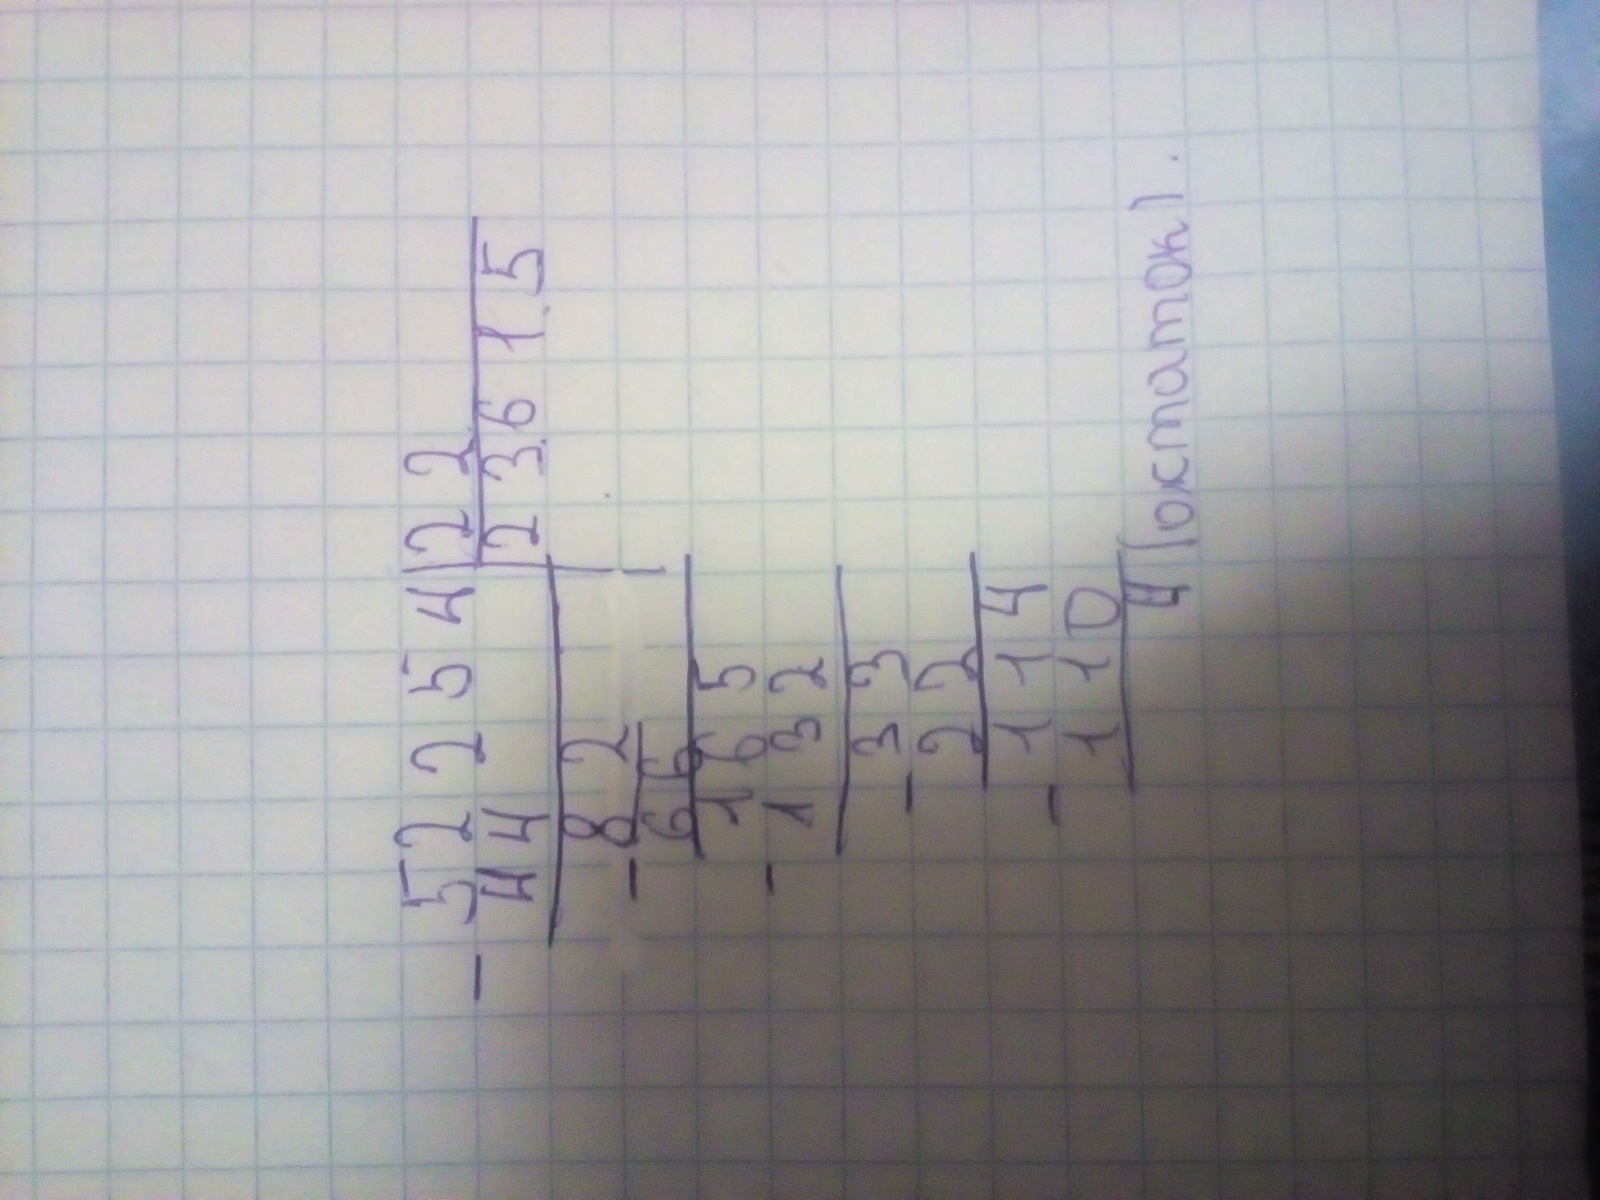 - 52254|22
44 23615
82
- 66
165
- 132
33
- 22
114
- 110
4 (остаток).